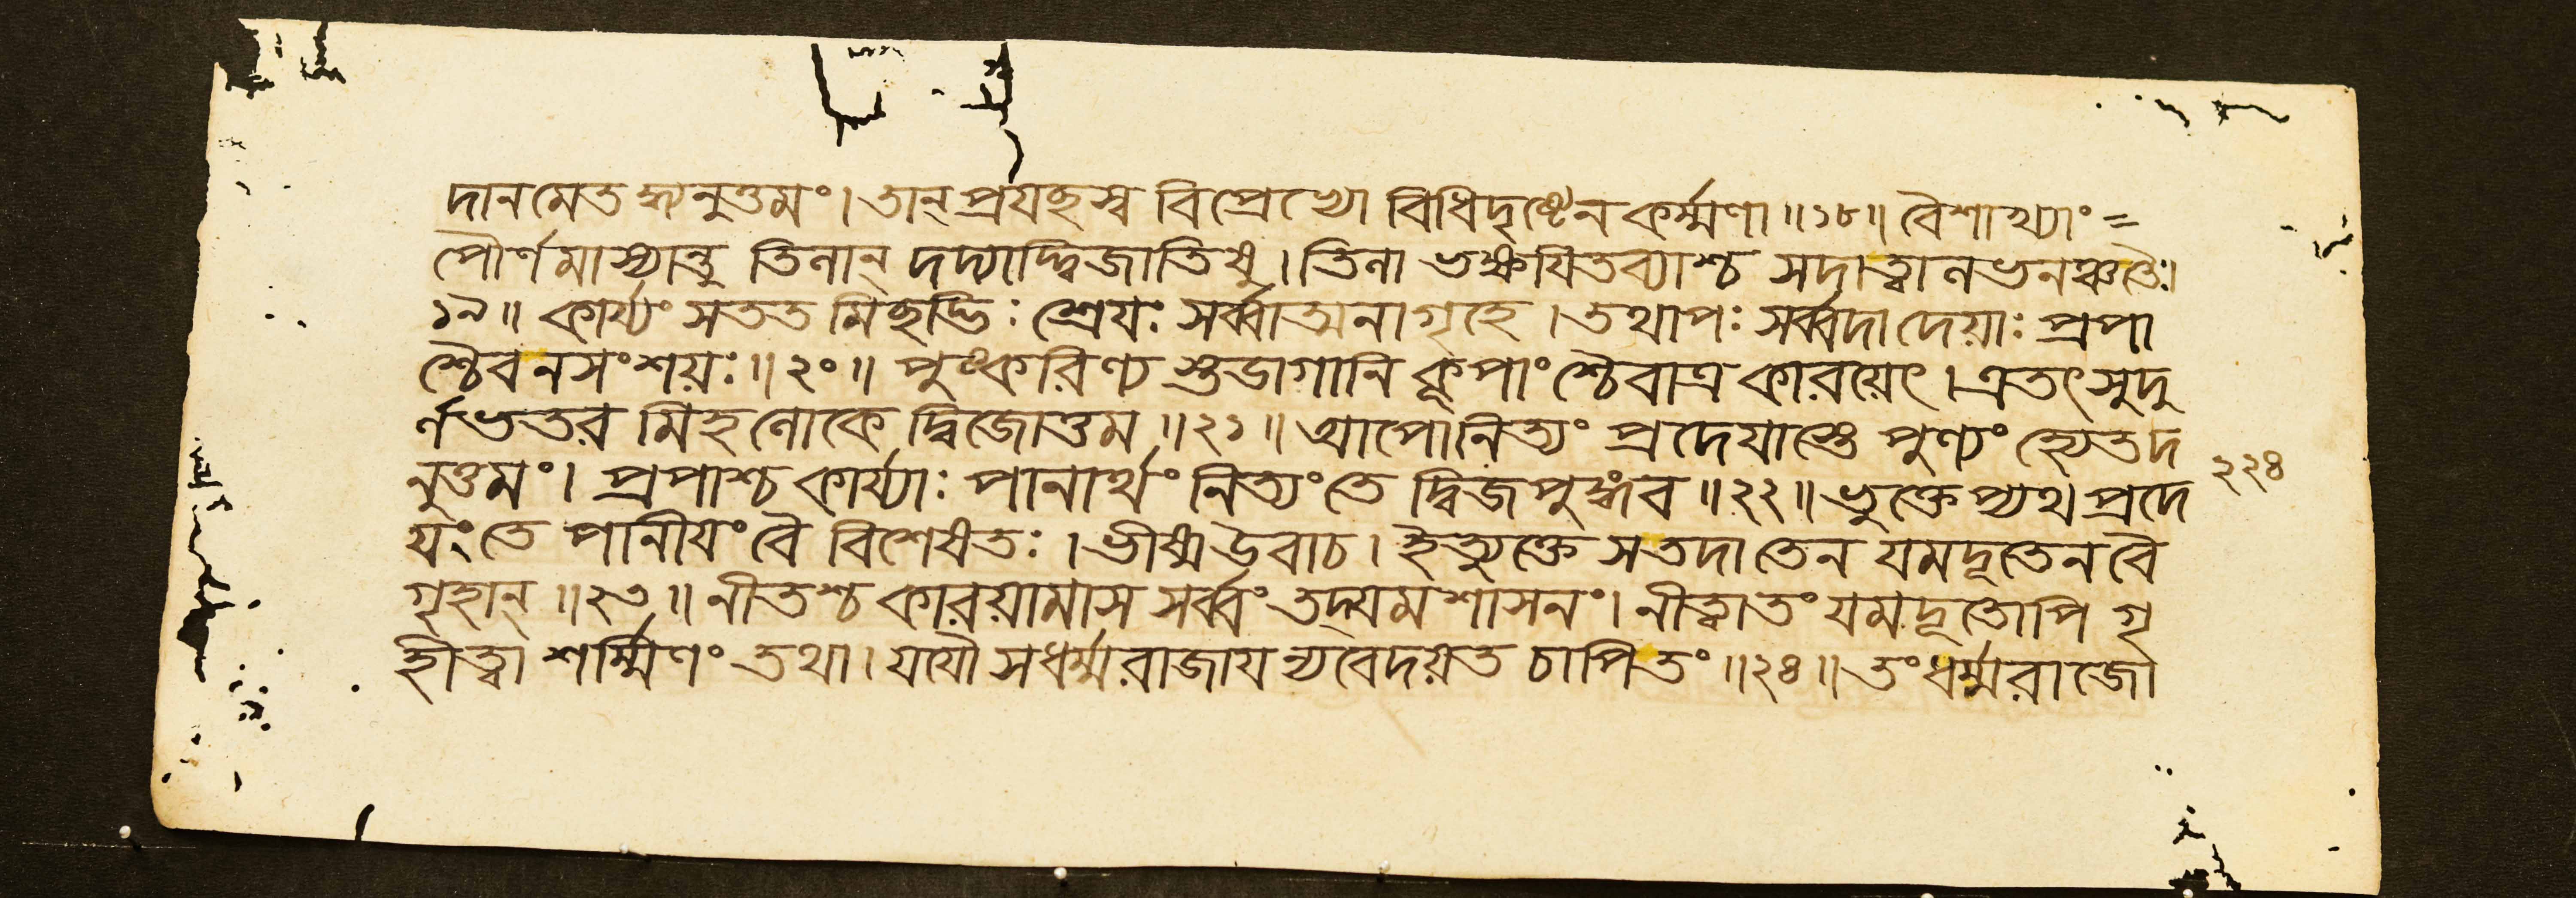 দানমেতদ্ধ্যনুত্তমং। তান্ প্রযচ্ছস্ব বিপ্রেভ্যো বিধিদৃষ্টেন কর্ম্মণা॥১৮॥ বৈশাখ্যাং=
পৌর্ণমাস্যান্তু তিলান্ দদ্যাদ্দ্বিজাতিষু। তিলা ভক্ষয়িতব্যাশ্চ সদাত্বালভনঞ্চতৈঃ।
১৯॥ কার্য্যং সততমিচ্ছদ্ভিঃ শ্রেযঃ সর্ব্বাত্মনাগৃহে। তথাপঃ সর্ব্বদাদেয়াঃ প্রপা
শ্চৈবনসংশয়ঃ॥২০॥ পুষ্করিণ্যস্তডাগানি কূপাংশ্চৈবাত্র কারয়েৎ। এতৎসুদু
র্লভতরমিহলোকে দ্বিজোত্তম॥২১॥ আপোনিত্যং প্রদেযাস্তে পুণ্যং হ্যেতদ
নুত্তমং। প্রপাশ্চকার্য্যাঃ পানার্থং নিত্যংতে দ্বিজপুঙ্গব॥২২॥ ভুক্তেপ্যথপ্রদে
যংতে পানীযংবৈ বিশেষতঃ। ভীষ্মউবাচ। ইত্যুক্তে সতদাতেন যমদূতেনবৈ
গৃহান্॥২৩॥ নীতশ্চকারয়ামাস সর্ব্বং তদ্যমশাসনং। নীত্বাতং যমদূতোপি গৃ
হীত্বা শর্ম্মিণং তথা। যযৌ সধর্ম্মরাজাযন্যবেদয়ত চাপিতং॥২৪॥ তংধর্ম্মরাজো
২২৪